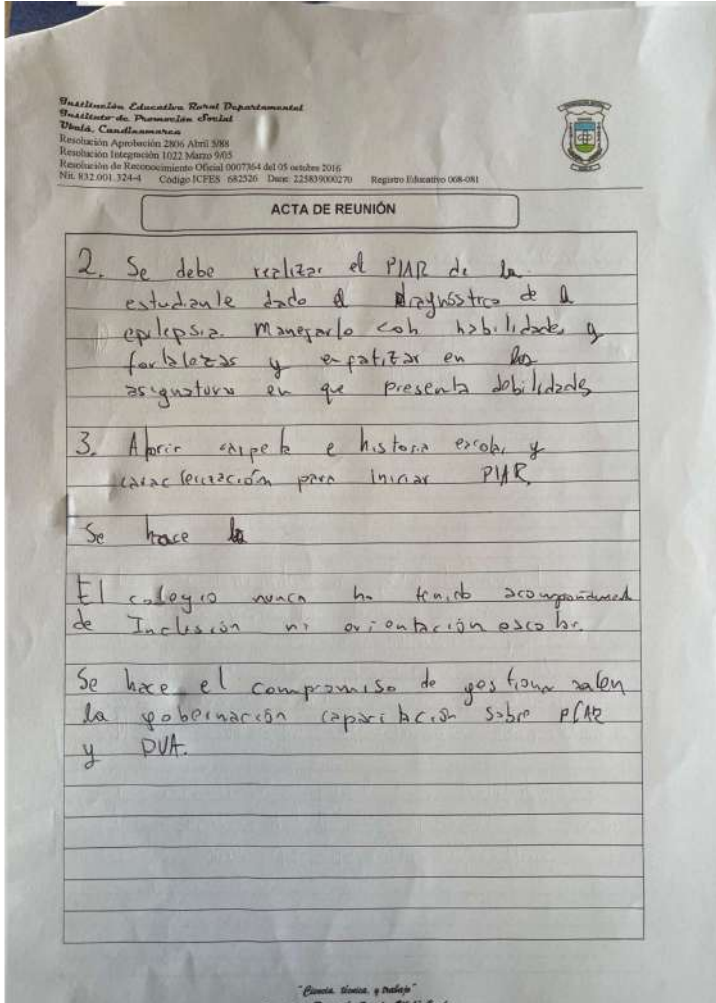 Institución Educativa Rural Departamental
Instituto de Promoción Social
Ubalá, Cundinamarca
Resolución Aprobación 2806 Abril 5/88
Resolución Integración 1022 Marzo 9/05
Resolución de Reconocimiento Oficial 0007364 del 05 octubre 2016
Nit. 832.001.324-4 Código ICFES 682526 Dane 225839000270 Registro Educativo 068-081
ACTA DE REUNIÓN
2. Se debe realizar el PIAR de la
estudiante dado el diagnóstico de
epilepsia. Manejarlo con habilidades y
fortalezas y enfatizar en las
asignatura en que presenta debilidades
3. Abrir carpeta e historia escolar y
caracterización para iniciar PIAR.
Se hace la
El colegio nunca ha tenido acompañamient
de Inclusión ni orientación escolar.
Se hace el compromiso de gestionar
la gobernación capacitación sobre PIAR
y DUA.
"Ciencia, técnica, y trabajo"